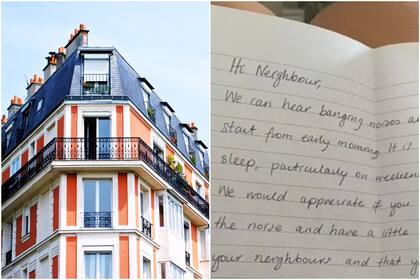 Hi Neighbour,
We can hear banging noises
start from early morning It is
sleep, particularly on weeken
We would appreciate if you
the noise and have a little
your neighbours and that y